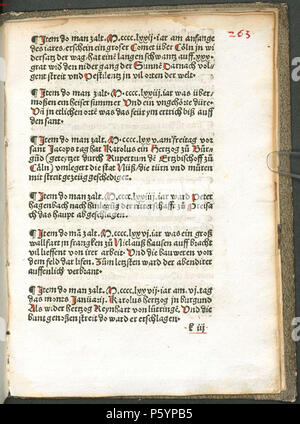 263
¶ Item do man zalt. M.cccc.lxxij. iar am anfange
des iares. erschein ein groser Comet über Cöln in wi
dersatz der wag. hat eine langen schwantz auff. xxx.
grat wid den nidergang der Sunnē Darnach vol-
gent streit vnd Pestilentz in vil orten der welt.
¶ Item do man zalt. M.cccc.lxxiij. iar was über-
moßen ein heiser summer Vnd ein vngehörte düre.
Vñ in etlichen orte was das seür ym ertrich biß auff
den sant.
¶ Item do man zalt. M.cccc.lxxv. am freitag vor
sant Jacops tag hat Karolus ein Hertzog zu Bur-
gun (gereytzet durch Rupertum dē Ertzbischoff zu
Cöln) vmlegert die stat Nüß. die türn vnd müren
mit streit gezeüg geschediget.
¶ Item do man zalt. M.cccc.lxxiiij. iar ward Peter
hagenbach nach kündgung der ritterschafft zu Preisa
ch das haupt abgeschlagen.
¶ Item do mā zalt. M.cccc.lxxvj. iar was ein groß
wallfart in francken zu Niclauß hausen auff bracht
vil lieffent von irer arbeit. Vnd die bauweren von
dem feld dar lisen. Zum letsten ward der abenditer
auffenlich verbrant.
¶ Item do man zalt. M.cccc.lxxvij. iar am. vj. tag
das monts Januarij. Karolus hertzog in burgund
Als wider hertzog Reynhart von lüttingē. Vnd die
bunt genoßen streit do ward er erschlagen.
k iij
alamy
Image ID: P5YPB5
www.alamy.com